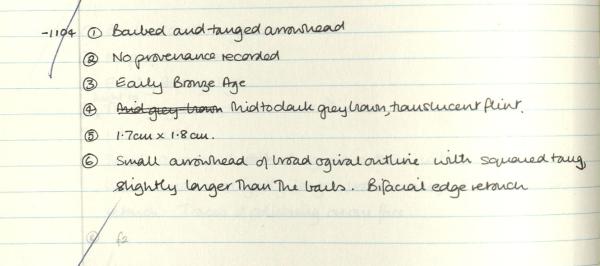 -1104 ① Barbed and tanged arrowhead
② No provenance recorded
③ Early Bronze Age
④ Mid grey brown Mid to dark grey brown, translucent flint.
⑤ 1.7cm x 1.8cm.
⑥ Small arrowhead of broad ogival outline with squared tang,
slightly longer than the barbs. Bifacial edge retouch